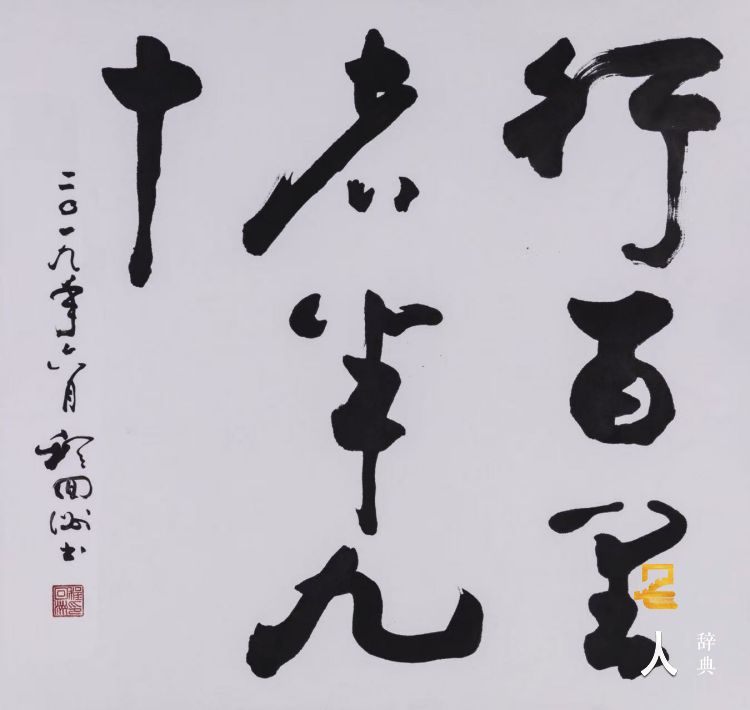 行百里
者半九
十
二〇一九年六月 程回洲书
名人
辞典